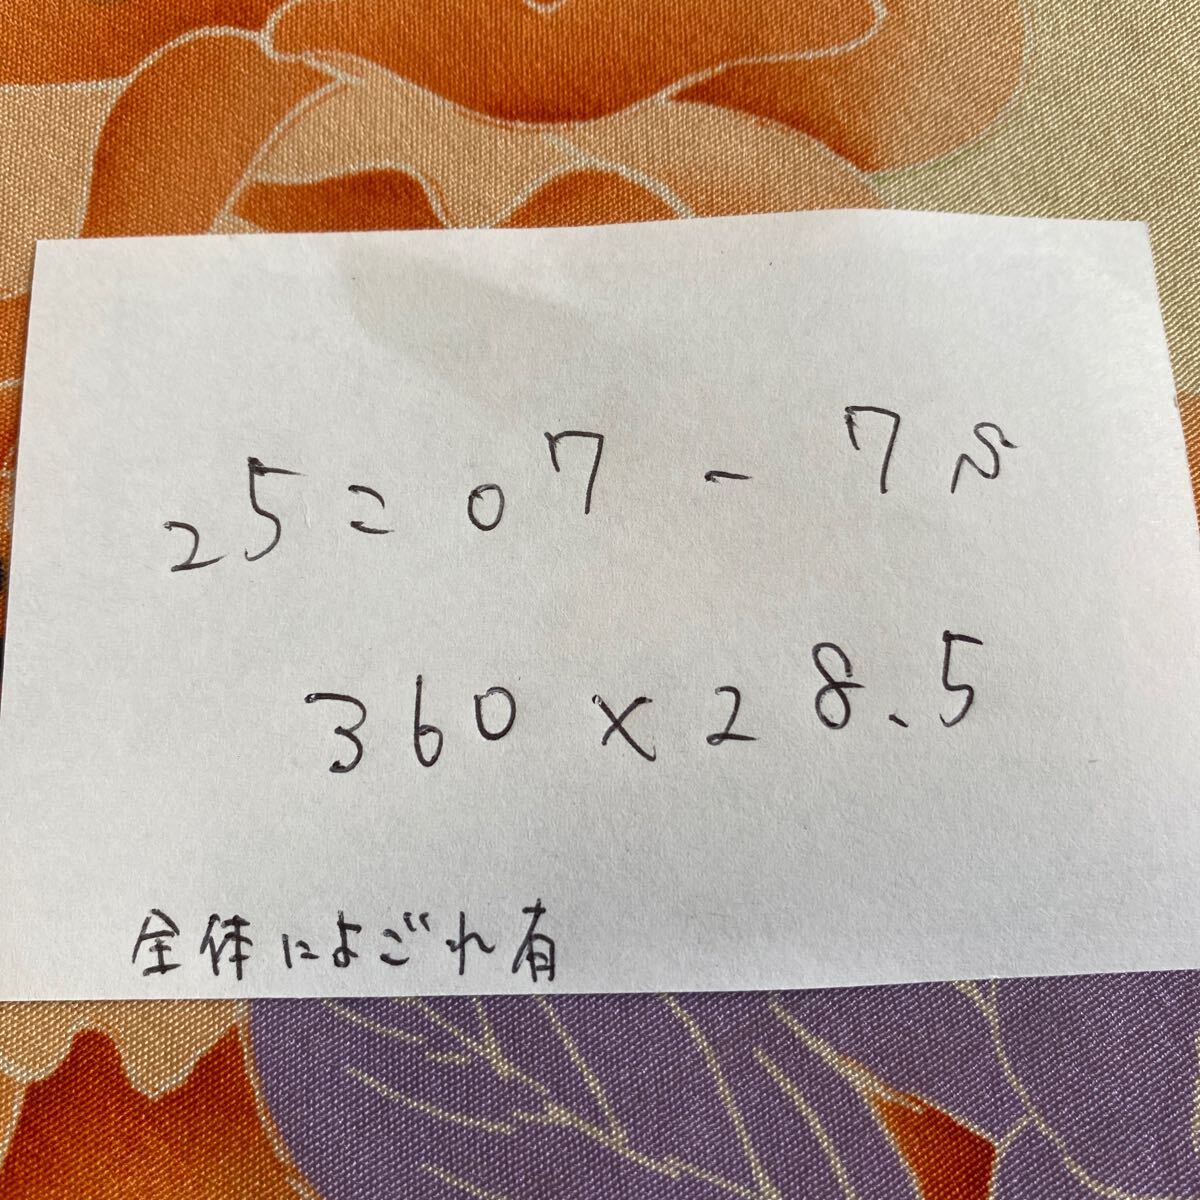 25=07-7
360×28.5
全体によごれ有